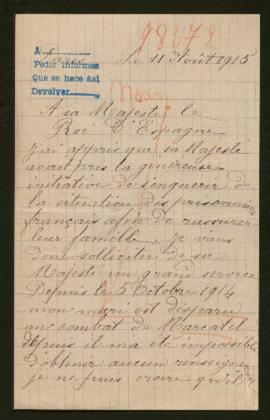 98372
A
Pedir informes
Que se hace Asi
Devolver
Le 11 Août 1915
A sa Majesté le
Roi D'Espagne
J'ai appris que sa Majesté
avait pris la généreuse
initiative de s'enquerir de
la situation des prisonniers
français afin de rassurer
leur famille. je viens
donc solliciter de sa
Majesté un grand service
Depuis le 5 Octobre 1914
mon mari est disparu
au combat de Mercatel
depuis il m'a été impossible
d'obtenir aucun renseigne
je ne puis croire qu'il